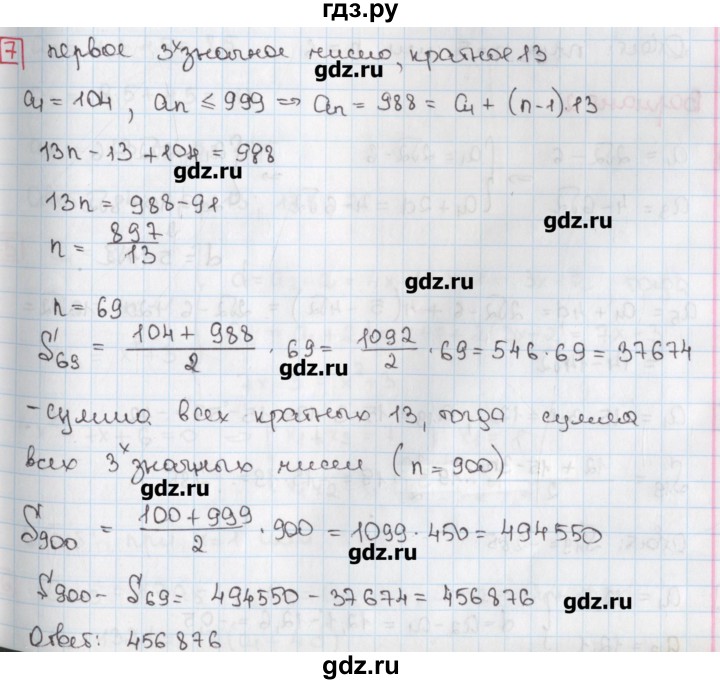 гдз.ру
7 первое 3ˣзначное число, кратное 13
gdz.ru
a₁ = 104, aₙ ≤ 999 ⇒ aₙ = 988 = a₁ + (n-1)13
13n - 13 + 104 = 988
gdz.ru
13n = 988 - 91
gdz.ru
n = 897/13
gdz.ru
n = 69
S₆₉ = (104 + 988)/2 · 69 = 1092/2 · 69 = 546 · 69 = 37674
gdz.ru
- сумма всех кратных 13, тогда сумма
gdz.ru
всех 3ˣзначных чисел (n = 900)
gdz.ru
S₉₀₀ = (100 + 999)/2 · 900 = 1099 · 450 = 494550
gdz.ru
S₉₀₀ - S₆₉ = 494550 - 37674 = 456876
gdz.ru
Ответ: 456 876
gdz.ru
gdz.ru